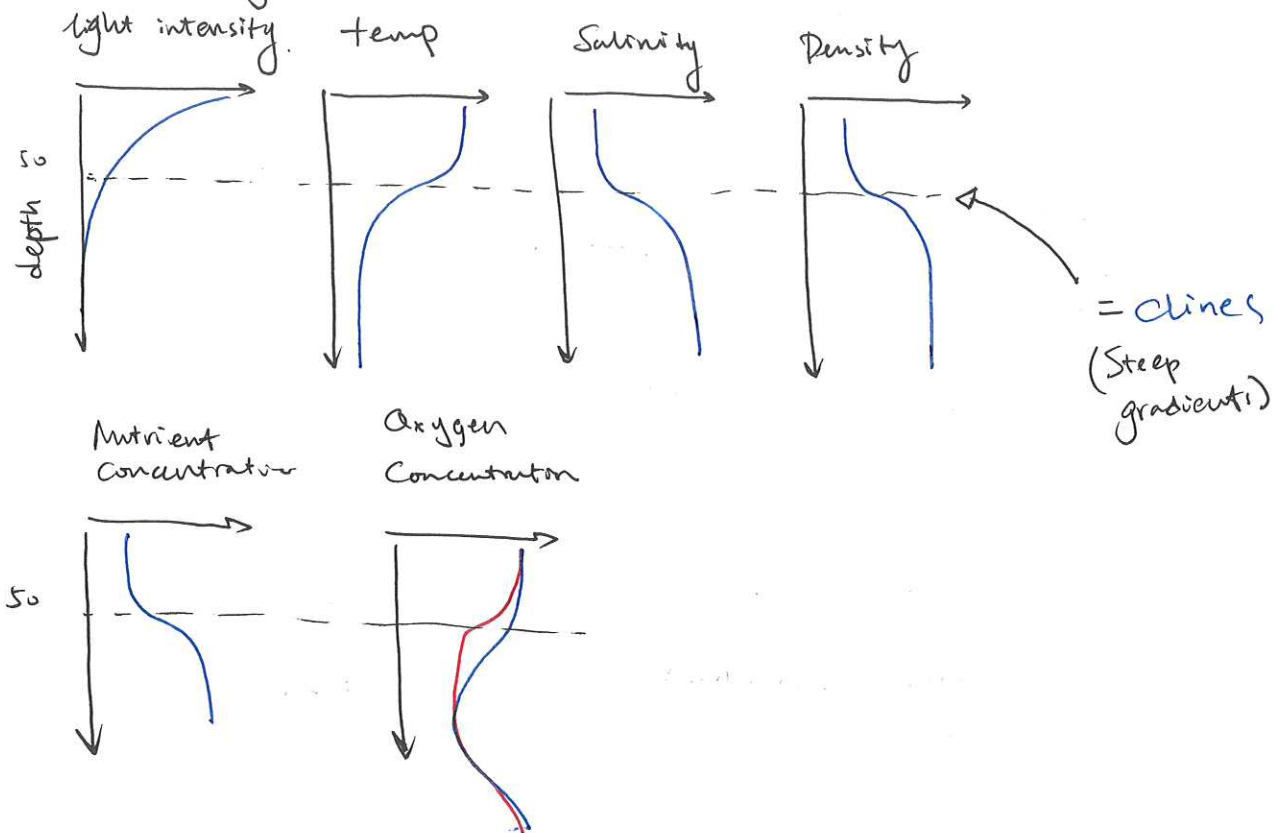 light intensity.
temp
Salinity
Density
50
depth
= clines
(Steep
gradients)
Nutrient
Concentration
Oxygen
Concentration
50